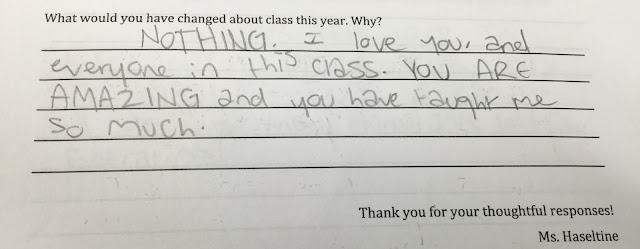 What would you have changed about class this year. Why?
NOTHING. I love you, and
everyone in this class. YOU ARE
AMAZING and you have taught me
so much.
Thank you for your thoughtful responses!
Ms. Haseltine